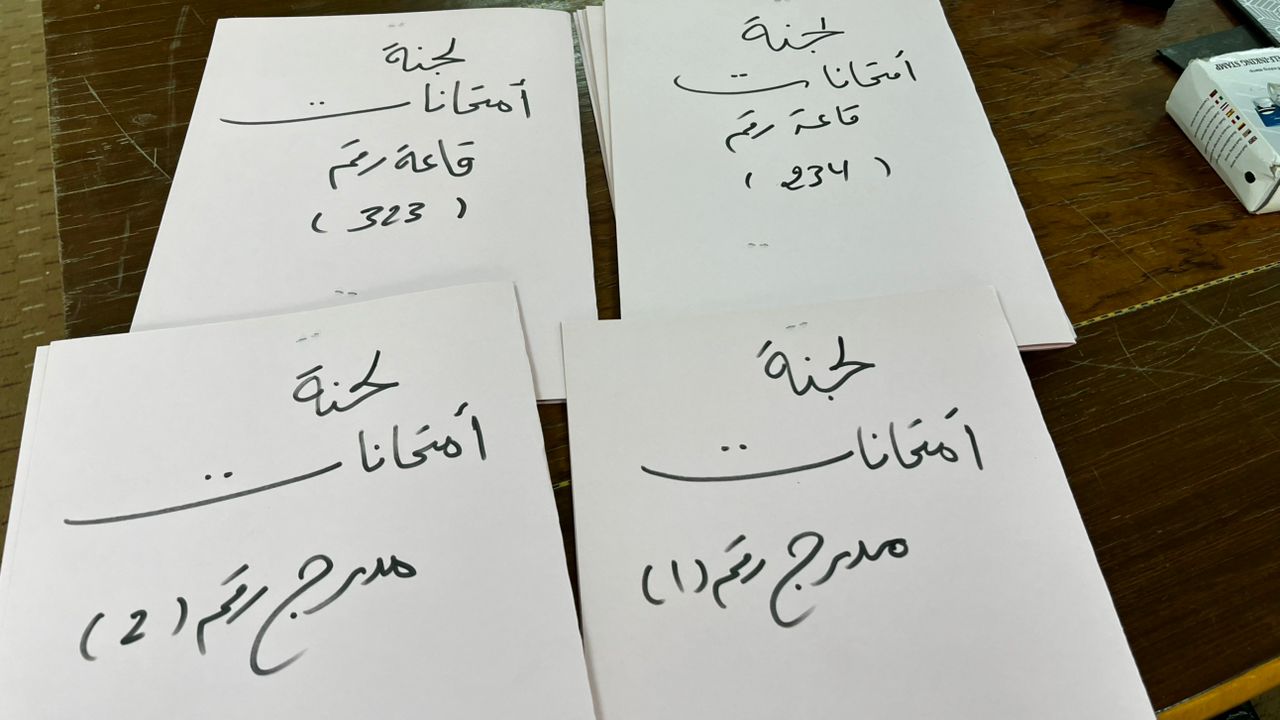 لجنة
أمتحانات
قاعة رقم
( 323 )
لجنة
أمتحانات
قاعة رقم
( 234 )
لجنة
أمتحانات
مدرج رقم ( 2 )
لجنة
أمتحانات
مدرج رقم ( 1 )
SELF-INKING STAMP